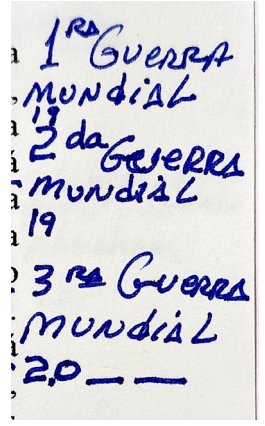 1RA GUERRA
MUNDIAL
19
2da GUERRA
MUNDIAL
19
3RA GUERRA
MUNDIAL
20__ __